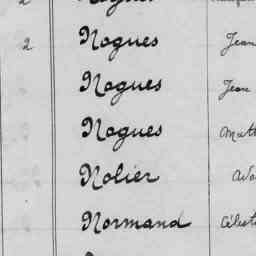 2 Nogues Jean
Nogues Jean
Nogues
Nolier
Normand